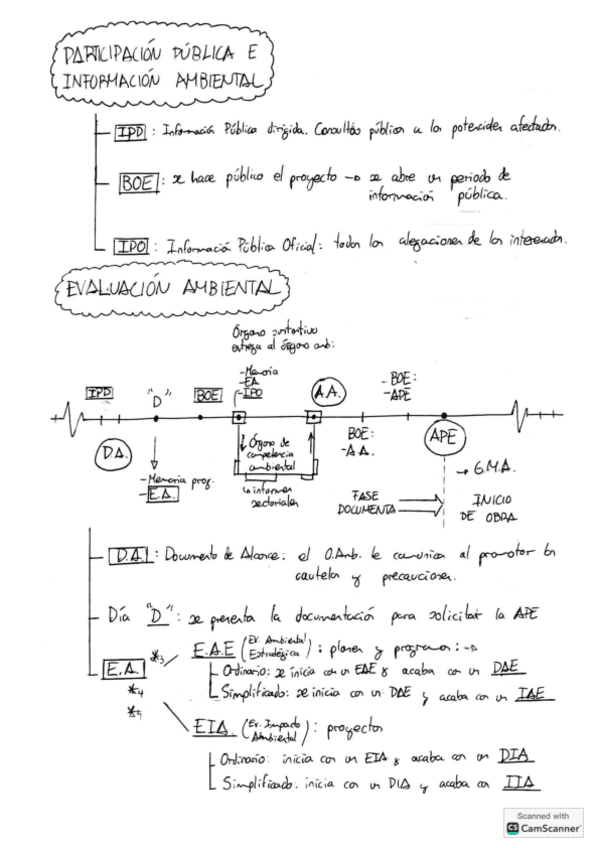 PARTICIPACIÓN PÚBLICA E
INFORMACIÓN AMBIENTAL
IPD : Información Pública dirigida. Consultas públicas a los potenciales afectados.
BOE : se hace público el proyecto → se abre un periodo de
información pública.
IPO : Información Pública Oficial: todas las alegaciones de los interesados.
EVALUACIÓN AMBIENTAL
Órgano sustantivo
entrega al órgano amb:
-Memoria
-EA
-IPO
IPD
"D"
BOE
A.A.
-BOE:
-APE
D.A.
Órgano de
competencia
ambiental
BOE:
-A.A.
APE
-Memoria proy.
-E.A.
↳ informes
sectoriales
→ G.M.A.
FASE
DOCUMENTA
INICIO
DE OBRA
D.A. : Documento de Alcance: el O.Amb. le comunica al promotor la
cautelas y precauciones.
Día "D" : se presenta la documentación para solicitar la APE
E.A.
*3
*4
*5
E.A.E (Ev. Ambiental Estratégica) : planes y programas: →
Ordinario: se inicia con un EAE y acaba con un DAE
Simplificado: se inicia con un DAE y acaba con un IAE
EIA (Ev. Impacto Ambiental) : proyectos
Ordinario: inicia con un EIA y acaba con un DIA
Simplificado: inicia con un DIA y acaba con IIA
Scanned with
CS CamScanner